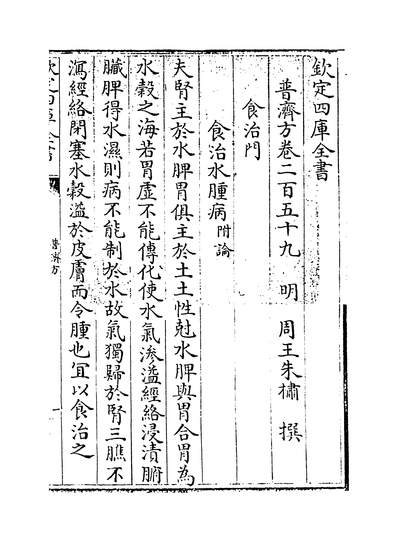 欽定四庫全書
普濟方卷二百五十九　明　周王朱橚　撰
食治門
食治水腫病附論
夫腎主於水脾胃俱主於土土性尅水脾與胃合胃為
水穀之海若胃虛不能傳化使水氣滲溢經絡浸漬腑
臟脾得水濕則病不能制於水故氣獨歸於腎三膲不
瀉經絡閉塞水穀溢於皮膚而令腫也宜以食治之
欽定四庫全書
普濟方
一